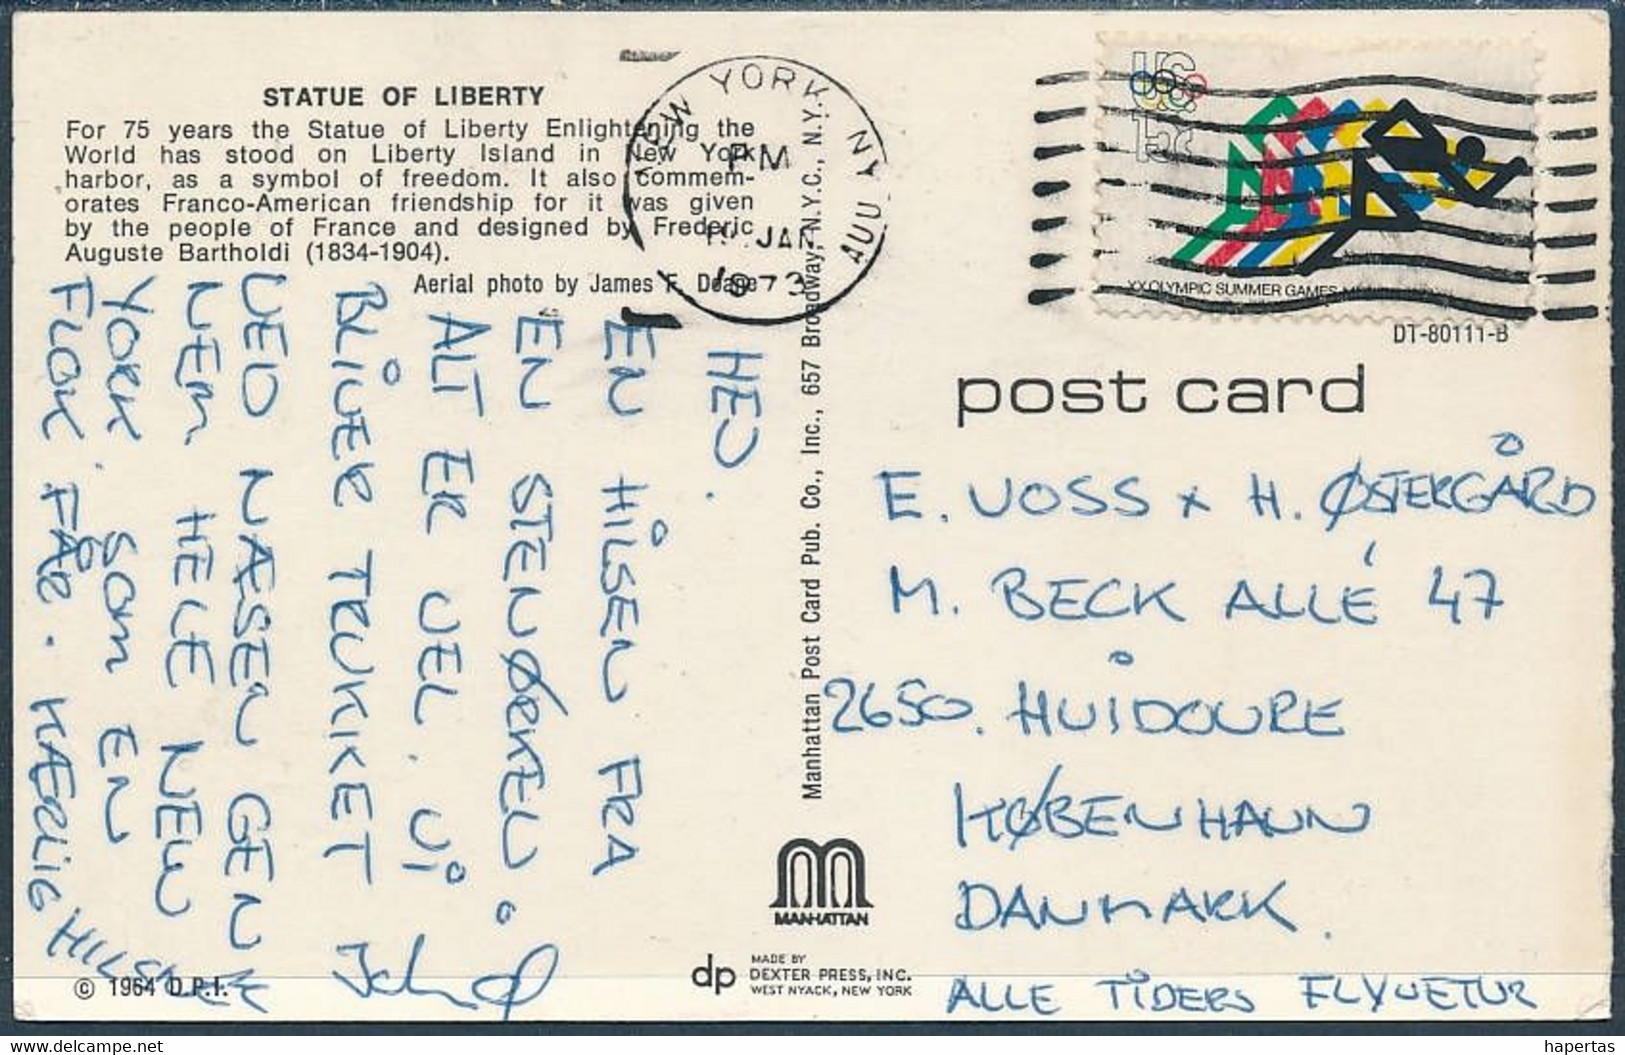 STATUE OF LIBERTY
For 75 years the Statue of Liberty Enlightening the
World has stood on Liberty Island in New York
harbor, as a symbol of freedom. It also commem-
orates Franco-American friendship for it was given
by the people of France and designed by Frederic
Auguste Bartholdi (1834-1904).
Aerial photo by James F. Doane
NEW YORK NY
PM
JAN
1973
US
15c
XX OLYMPIC SUMMER GAMES
DT-80111-B
post card
HEJ.
EN HILSEN FRA
EN STENØRKEN.
ALT ER VEL. VI
BLIVER TRUKKET
VED NÆSEN GENNEM
NEM HELE NEW
YORK. SOM EN
FLOK FÅR. KÆRLIG HILSEN
E. VOSS + H. ØSTERGÅRD
M. BECK ALLÉ 47
2650. HVIDOVRE
KØBENHAVN
DANMARK.
ALLE TIDERS FLYVETUR
Manhattan Post Card Pub. Co., Inc., 657 Broadway, N.Y.C., N.Y.
MANHATTAN
dp
MADE BY
DEXTER PRESS, INC.
WEST NYACK, NEW YORK
© 1964 D.P.I.
www.delcampe.net
hapertas